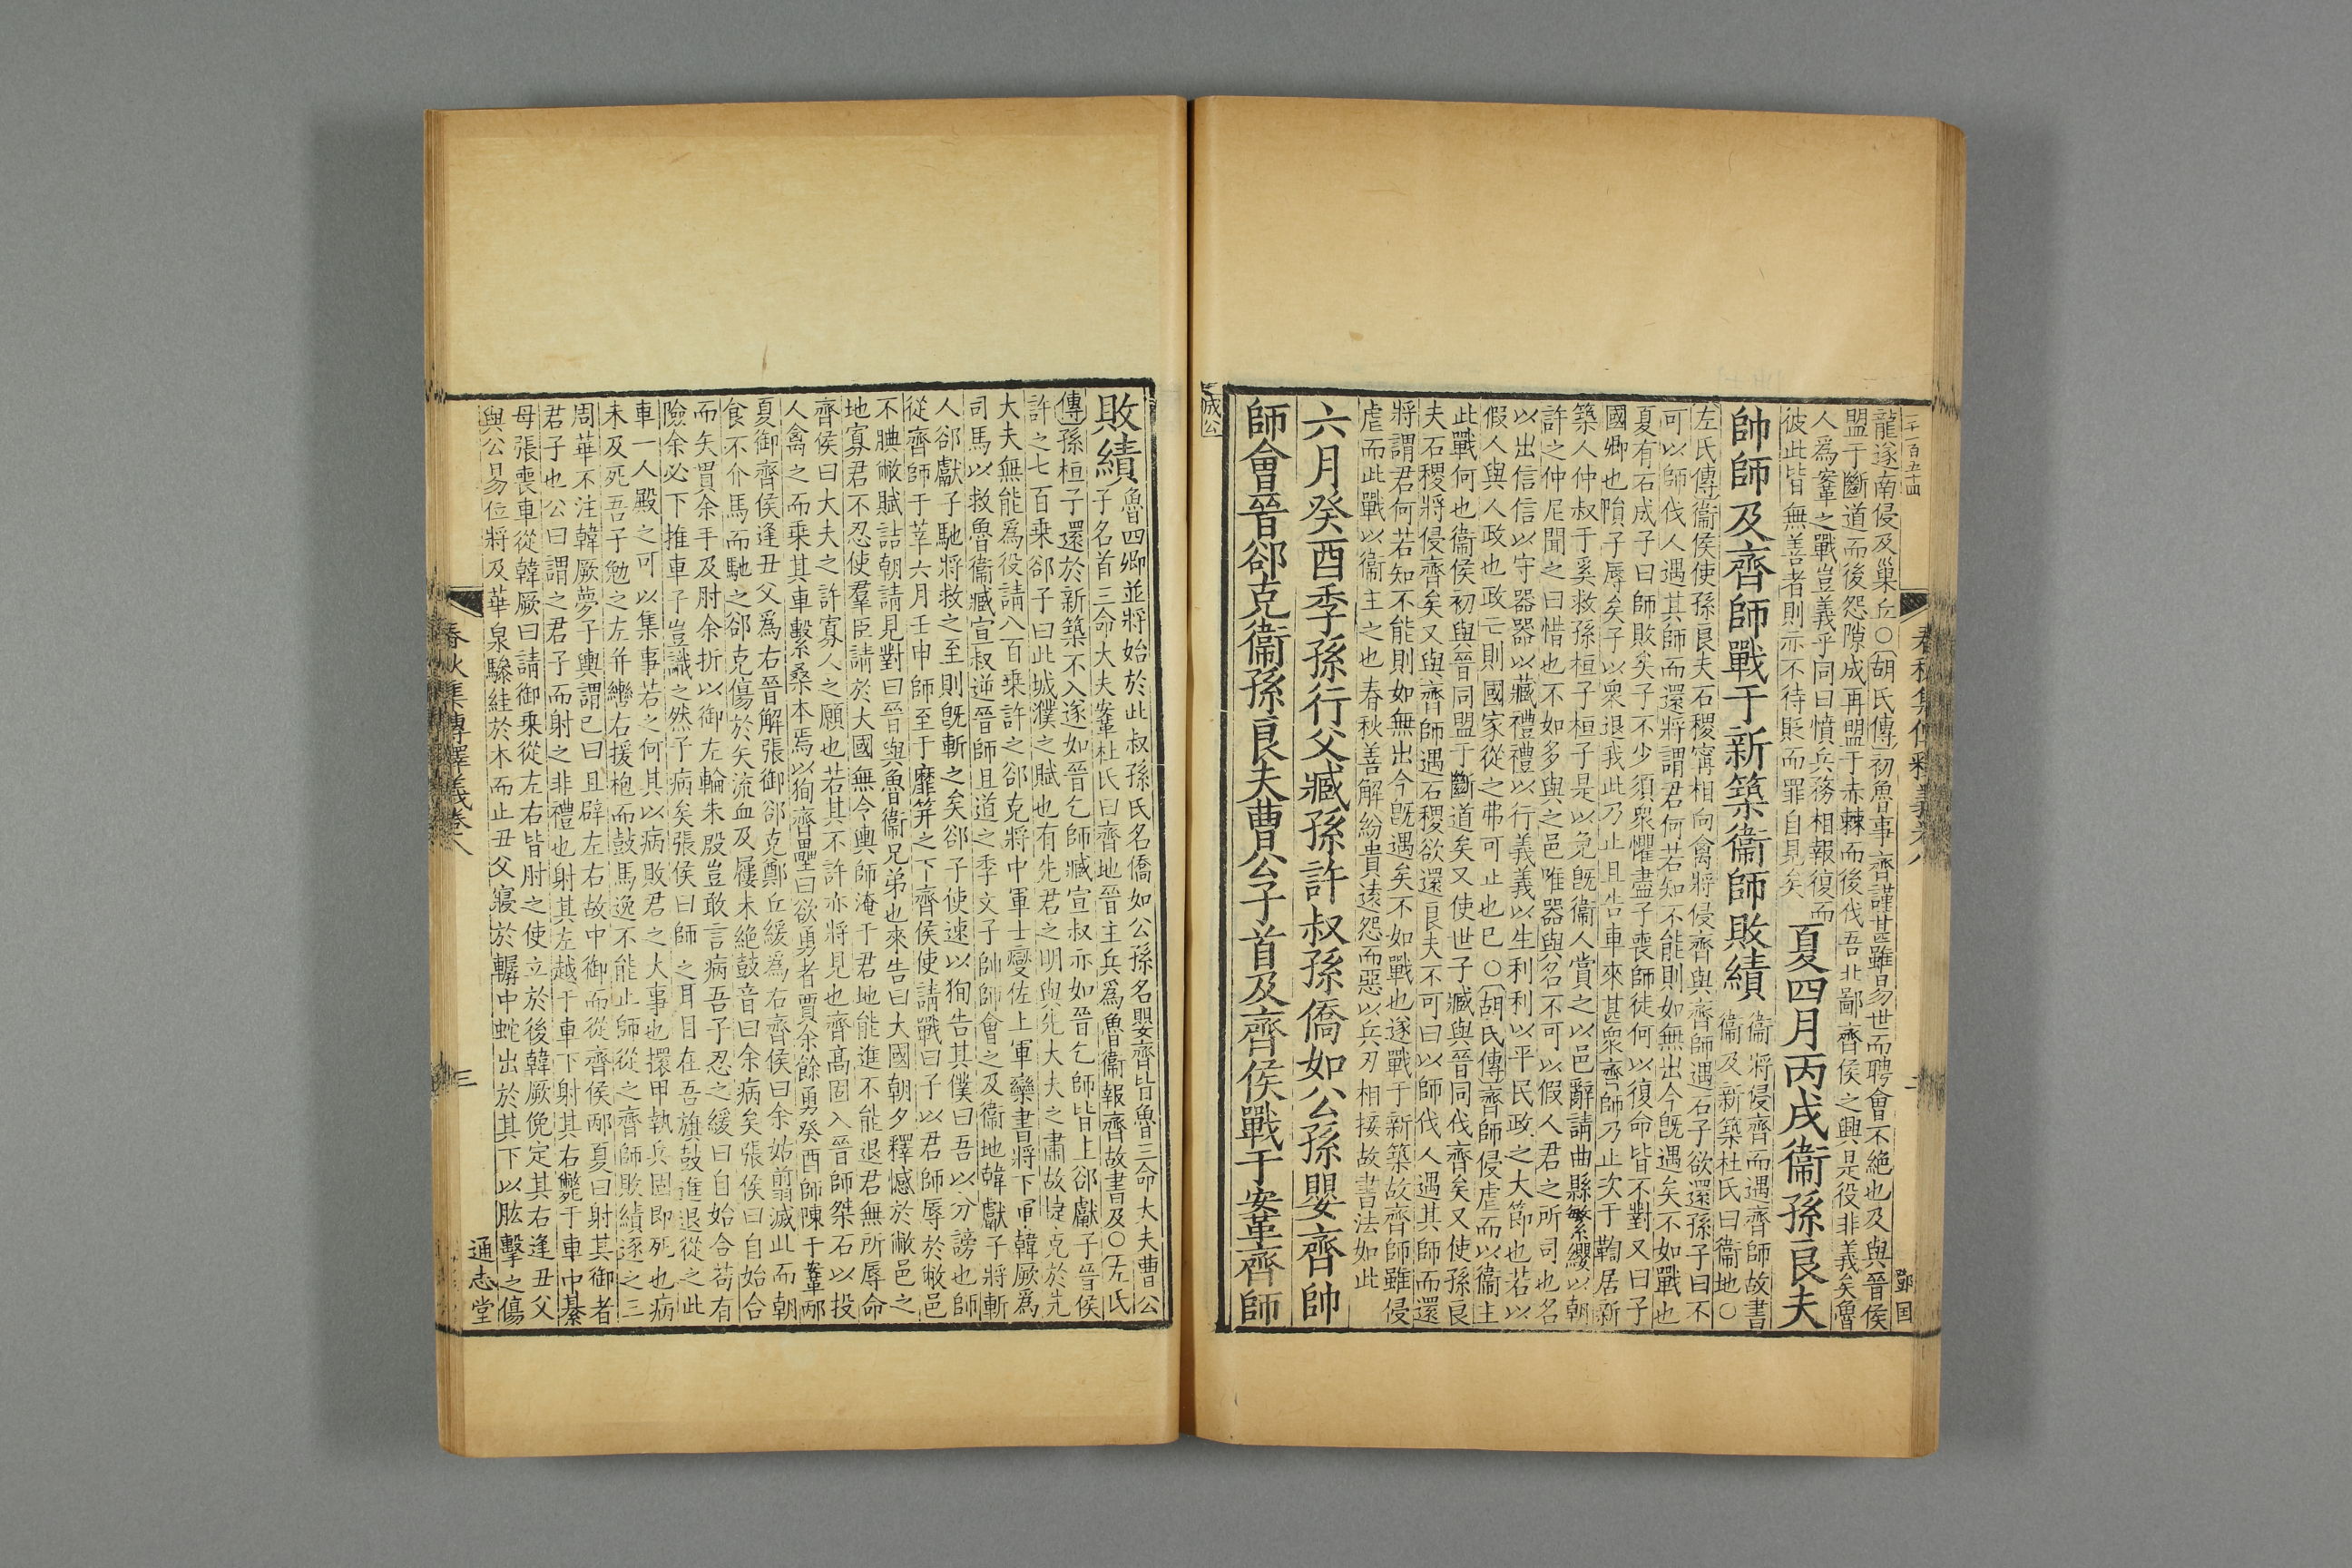 二千一百五十四
春秋集傳釋義卷八
二
鄧国
龍遂南侵及巢丘○胡氏傳初魯事齊謹甚雖易世而聘會不絶也及與晉侯
盟于斷道而後怨隙成再盟于赤棘而後伐吾北鄙齊侯之興是役非義矣魯
人爲鞌之戰豈義乎同曰憤兵務相報復而
彼此皆無善者則亦不待貶而罪自見矣
夏四月丙戌衞孫良夫
帥師及齊師戰于新築衞師敗績
衞將侵齊而遇齊師故書
衞及新築杜氏曰衞地○
左氏傳衞侯使孫良夫石稷甯相向禽將侵齊與齊師遇石子欲還孫子曰不
可以師伐人遇其師而還將謂君何若知不能則如無出今旣遇矣不如戰也
夏有石成子曰師敗矣子不少須衆懼盡子喪師徒何以復命皆不對又曰子
國卿也隕子辱矣子以衆退我此乃止且告車來甚衆齊師乃止次于鞫居新
築人仲叔于奚救孫桓子桓子是以免旣衞人賞之以邑辭請曲縣繁纓以朝
許之仲尼聞之曰惜也不如多與之邑唯器與名不可以假人君之所司也名
以出信信以守器器以藏禮禮以行義義以生利利以平民政之大節也若以
假人與人政也政亡則國家從之弗可止也已○胡氏傳齊師侵虐而以衞主
此戰何也衞侯初與晉同盟于斷道矣又使世子臧與晉同伐齊矣又使孫良
夫石稷將侵齊矣又與齊師遇石稷欲還良夫不可曰以師伐人遇其師而還
將謂君何若知不能則如無出今旣遇矣不如戰也遂戰于新築故齊師雖侵
虐而此戰以衞主之也春秋善解紛貴遠怨而惡以兵刃相接故書法如此
六月癸酉季孫行父臧孫許叔孫僑如公孫嬰齊帥
師會晉郤克衞孫良夫曹公子首及齊侯戰于鞌齊師
成公
敗績
魯四卿並將始於此叔孫氏名僑如公孫名嬰齊皆魯三命大夫曹公
子名首三命大夫鞌杜氏曰齊地晉主兵爲魯衞報齊故書及○左氏
傳孫桓子還於新築不入遂如晉乞師臧宣叔亦如晉乞師皆主郤獻子晉侯
許之七百乗郤子曰此城濮之賦也有先君之明與先大夫之肅故捷克於先
大夫無能爲役請八百乗許之郤克將中軍士燮佐上軍欒書將下軍韓厥爲
司馬以救魯衞臧宣叔逆晉師且道之季文子帥師會之及衞地韓獻子將斬
人郤獻子馳將救之至則旣斬之矣郤子使速以狥告其僕曰吾以分謗也師
從齊師于莘六月壬申師至于靡笄之下齊侯使請戰曰子以君師辱於敝邑
不腆敝賦詰朝請見對曰晉與魯衞兄弟也來告曰大國朝夕釋憾於敝邑之
地寡君不忍使羣臣請於大國無令輿師淹于君地能進不能退君無所辱命
齊侯曰大夫之許寡人之願也若其不許亦將見也齊高固入晉師桀石以投
人禽之而乗其車繫桑本焉以狥齊壘曰欲勇者賈余餘勇癸酉師陳于鞌邴
夏御齊侯逢丑父爲右晉解張御郤克鄭丘緩爲右齊侯曰余姑翦滅此而朝
食不介馬而馳之郤克傷於矢流血及屨未絶鼓音曰余病矣張侯曰自始合
而矢貫余手及肘余折以御左輪朱殷豈敢言病吾子忍之緩曰自始合苟有
險余必下推車子豈識之然子病矣張侯曰師之耳目在吾旗鼓進退從之此
車一人殿之可以集事若之何其以病敗君之大事也擐甲執兵固即死也病
未及死吾子勉之左并轡右援枹而鼓馬逸不能止師從之齊師敗績逐之三
周華不注韓厥夢子輿謂己曰且辟左右故中御而從齊侯邴夏曰射其御者
君子也公曰謂之君子而射之非禮也射其左越于車下射其右斃于車中綦
母張喪車從韓厥曰請御乗從左右皆肘之使立於後韓厥俛定其右逢丑父
與公易位將及華泉驂絓於木而止丑父寢於轏中蛇出於其下以肱擊之傷
春秋集傳釋義卷八
三
通志堂